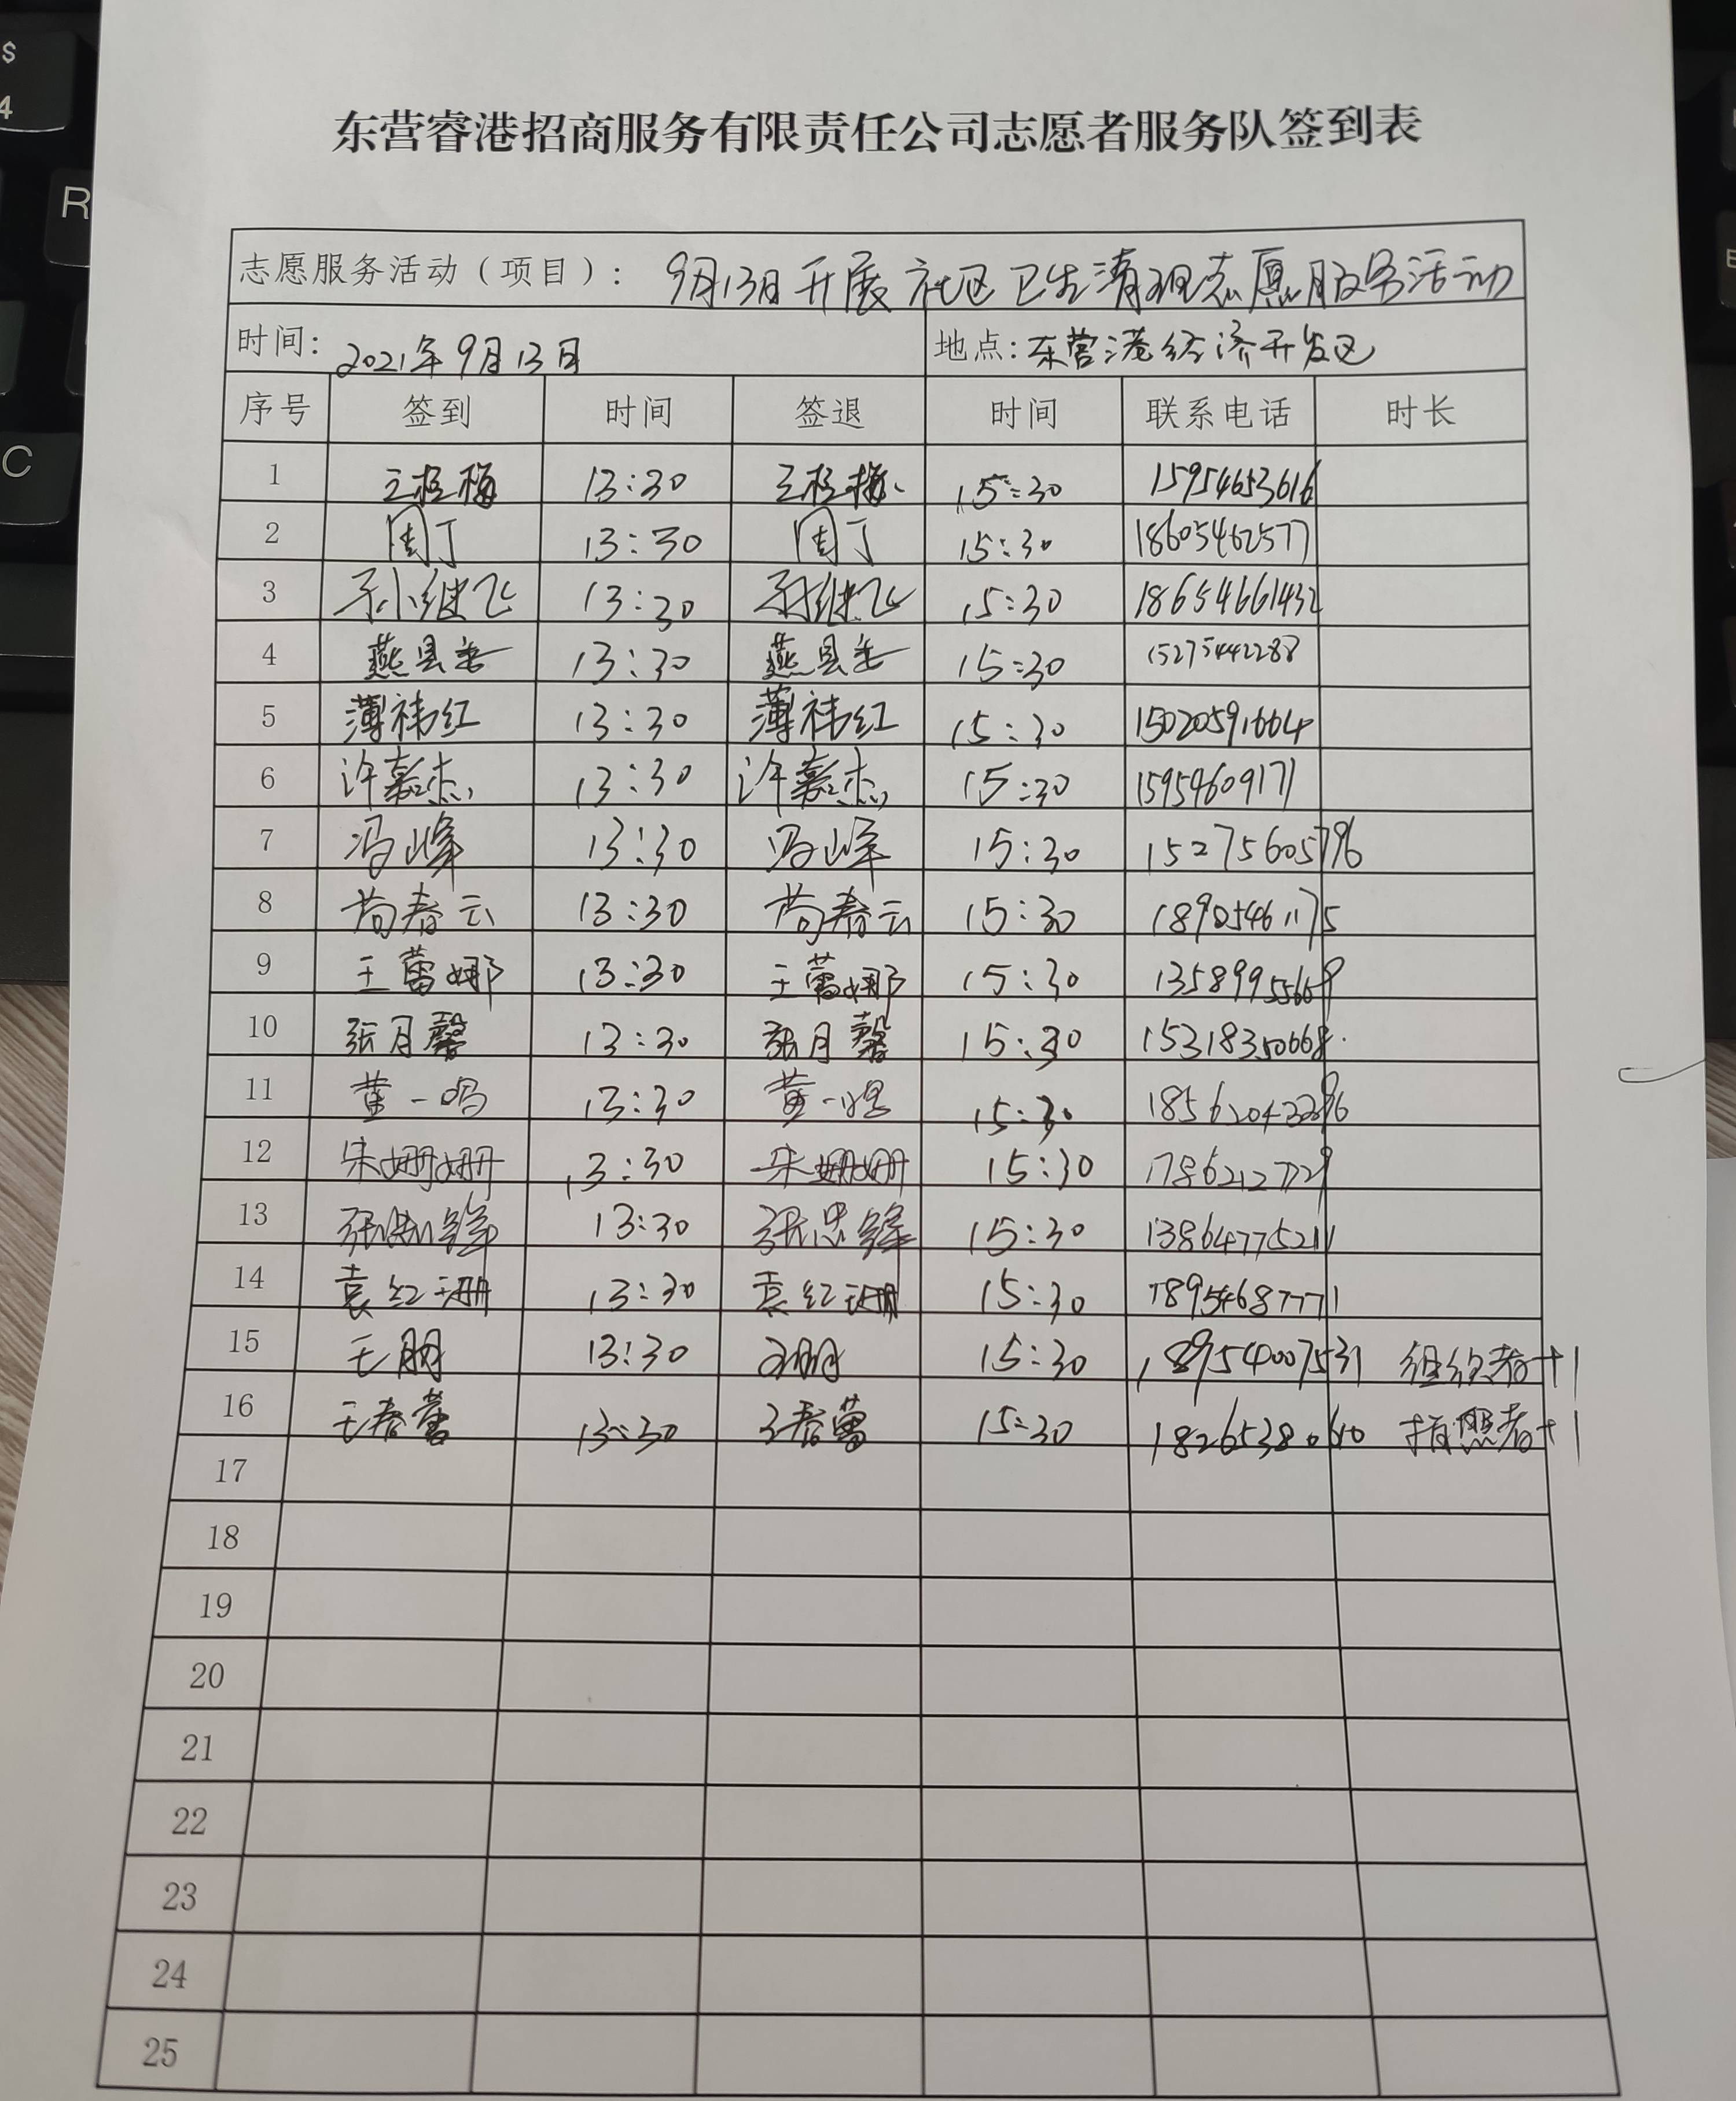 东营睿港招商服务有限责任公司志愿者服务队签到表
志愿服务活动（项目）： 9月13日开展社区卫生清理志愿服务活动
时间： 2021年9月13日 地点：东营港经济开发区
序号 签到 时间 签退 时间 联系电话 时长
1 13:30 15:30 15954653616
2 周丁 13:30 周丁 15:30 18605462577
3 孙继飞 13:30 孙继飞 15:30 18654661432
4 13:30 15:30 15275442288
5 薄祎红 13:30 薄祎红 15:30 15020591664
6 许嘉杰 13:30 许嘉杰 15:30 15954609171
7 冯峰 13:30 冯峰 15:30 15275605796
8 尚春云 13:30 尚春云 15:30 18905461175
9 王蕾娜 13:30 王蕾娜 15:30 13589955669
10 张月馨 13:30 张月馨 15:30 15318350668
11 黄一鸣 13:30 黄一鸣 15:30
12 朱姗姗 13:30 朱姗姗 15:30 17862127729
13 张忠锋 13:30 张忠锋 15:30 13864775211
14 袁红珊 13:30 袁红珊 15:30 18954687771
15 王朋 13:30 王朋 15:30 18954007531 组织者+1
16 王春蕾 13:30 王春蕾 15:30 18265380610 拍照者+1
17
18
19
20
21
22
23
24
25
$
4
R
C